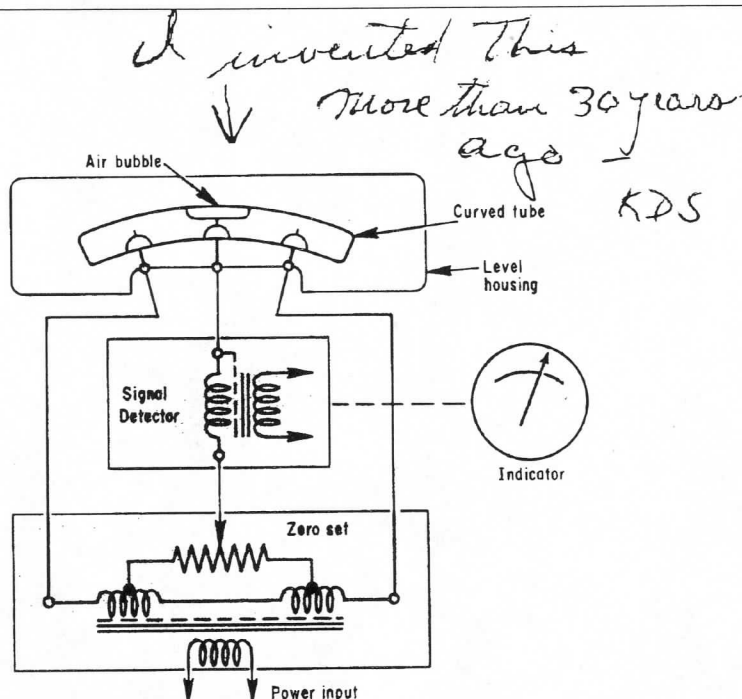 I invented This
more than 30 years
ago -
KDS
Air bubble
Curved tube
Level
housing
Signal
Detector
Indicator
Zero set
Power input